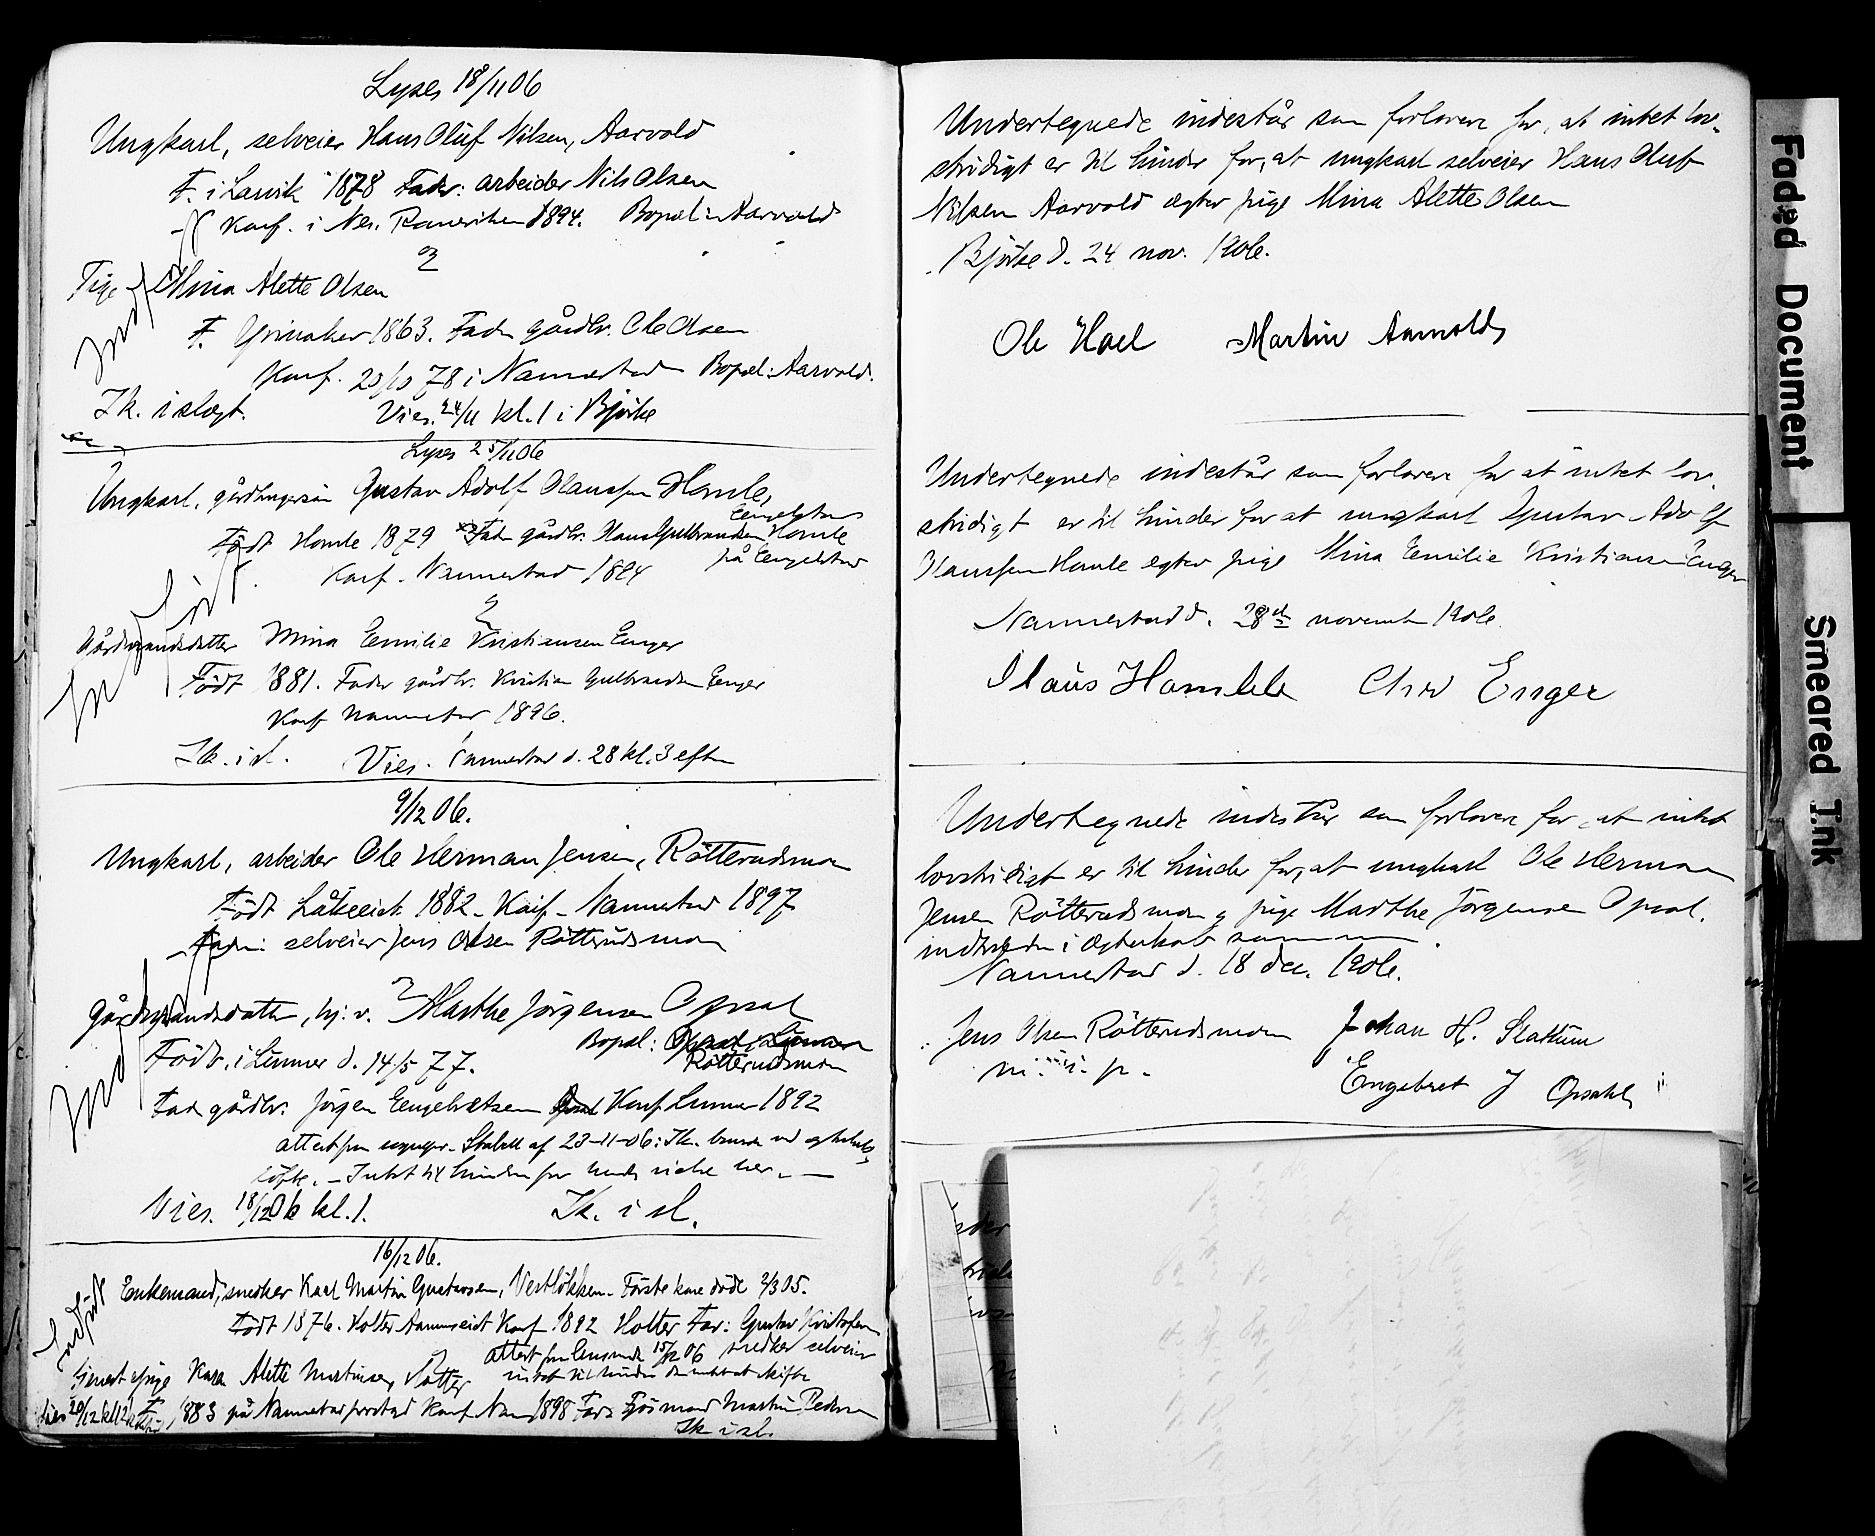 Lyses 18/11 06
Ungkarl, selveier Hans Oluf Nilsen, Aarvold
F. i Larvik 1878 Fader: arbeider Nils Olsen
Konf. i Nes. Romerike 1894. Bopæl: Aarvold
og
Pige Mina Alette Olsen
F. Grinaker 1863. Fader gårdbr. Ole Olsen
Konf. 1878 i Nannestad Bopæl: Aarvold.
Ik. i slægt. Vies. 24/11 kl. 1 i Bjørke
Indført
Lyses 25/11 06
Ungkarl, gårdbrugersøn Gustav Adolf Hansen Homle,
Født Homle 1879 Fader gårdbr. Hans Gulbrandsen Homle
Engelstad
på Engelstad
Konf. Nannestad 1894
og
Gårdmandsdatter Mina Emilie Kristiansen Enger
Født 1881. Fader gårdbr. Kristian Gulbrandsen Enger
Konf Nannestad 1896.
Ik. i sl. Vies. Nannestad d. 28 kl. 3 efterm
Indført
9/12 06.
Ungkarl, arbeider Ole Herman Jensen, Rötterudsmoen
Født 1882 - Konf - Nannestad 1897
Fader: selveier Jens Olsen Rötterudsmoen
og
gårdmandsdatter, hj. v. Marthe Jörgensen Opsal
Bopæl: Opsal i Lunner
Rötterudsmoen
Født i Lunner d. 14/5 77.
Fader gårdbr. Jörgen Engebretsen Opsal Konf Lunner 1892
attest fra sogneprest af 23-11-06: Ik. bunden ved ægteskabs
löfte. - Intet til hinder for hende vides her. -
Vies. 18/12 06 kl. 1. Ik. i sl.
Indført
16/12 06.
Enkemand, snedker Karl Martin Gustavsen, Vestlökken. Første kone døde 2/3 05.
Født 1876. Holter Konf 1892 Holter Far: Gustav Kristofersen
snedker selveier
attest fra 15/12 06
intet til hinder
Tjenestepige Kaja Alette Martinsen
Vies 20/12 kl 12 F. 1883 på Nannestad prestegd Konf Nan 1898 Fader Fjösmand Martin Pedersen
Ik i sl.
Indført
Undertegnede indestår som forlovere for, at intet lov-
stridigt er til hinder for, at ungkarl selveier Hans Oluf
Nilsen Aarvold ægter pige Mina Alette Olsen
Bjørke d. 24 nov. 1906.
Ole Hoel Martin Aarnolds
Undertegnede indestår som forlovere for at intet lov-
stridigt er til hinder for at ungkarl Gustav Adolf
Hansen Homle egter pige Mina Emilie Kristiansen Enger
Nannestad d. 28de november 1906.
Chr Enger
Undertegnede indestår som forlovere for, at intet
lovstridigt er til hinder for, at ungkarl Ole Herman
Jensen Rötterudsmoen og pige Marthe Jörgensen Opsal.
indtræder i Ægteskab sammen.
Nannestad d. 18 dec. 1906.
Jens Olsen Rötterudsmoen Johan H. Slattum
m. p.
Engebret J Opsahl
Faded Document
Smeared Ink